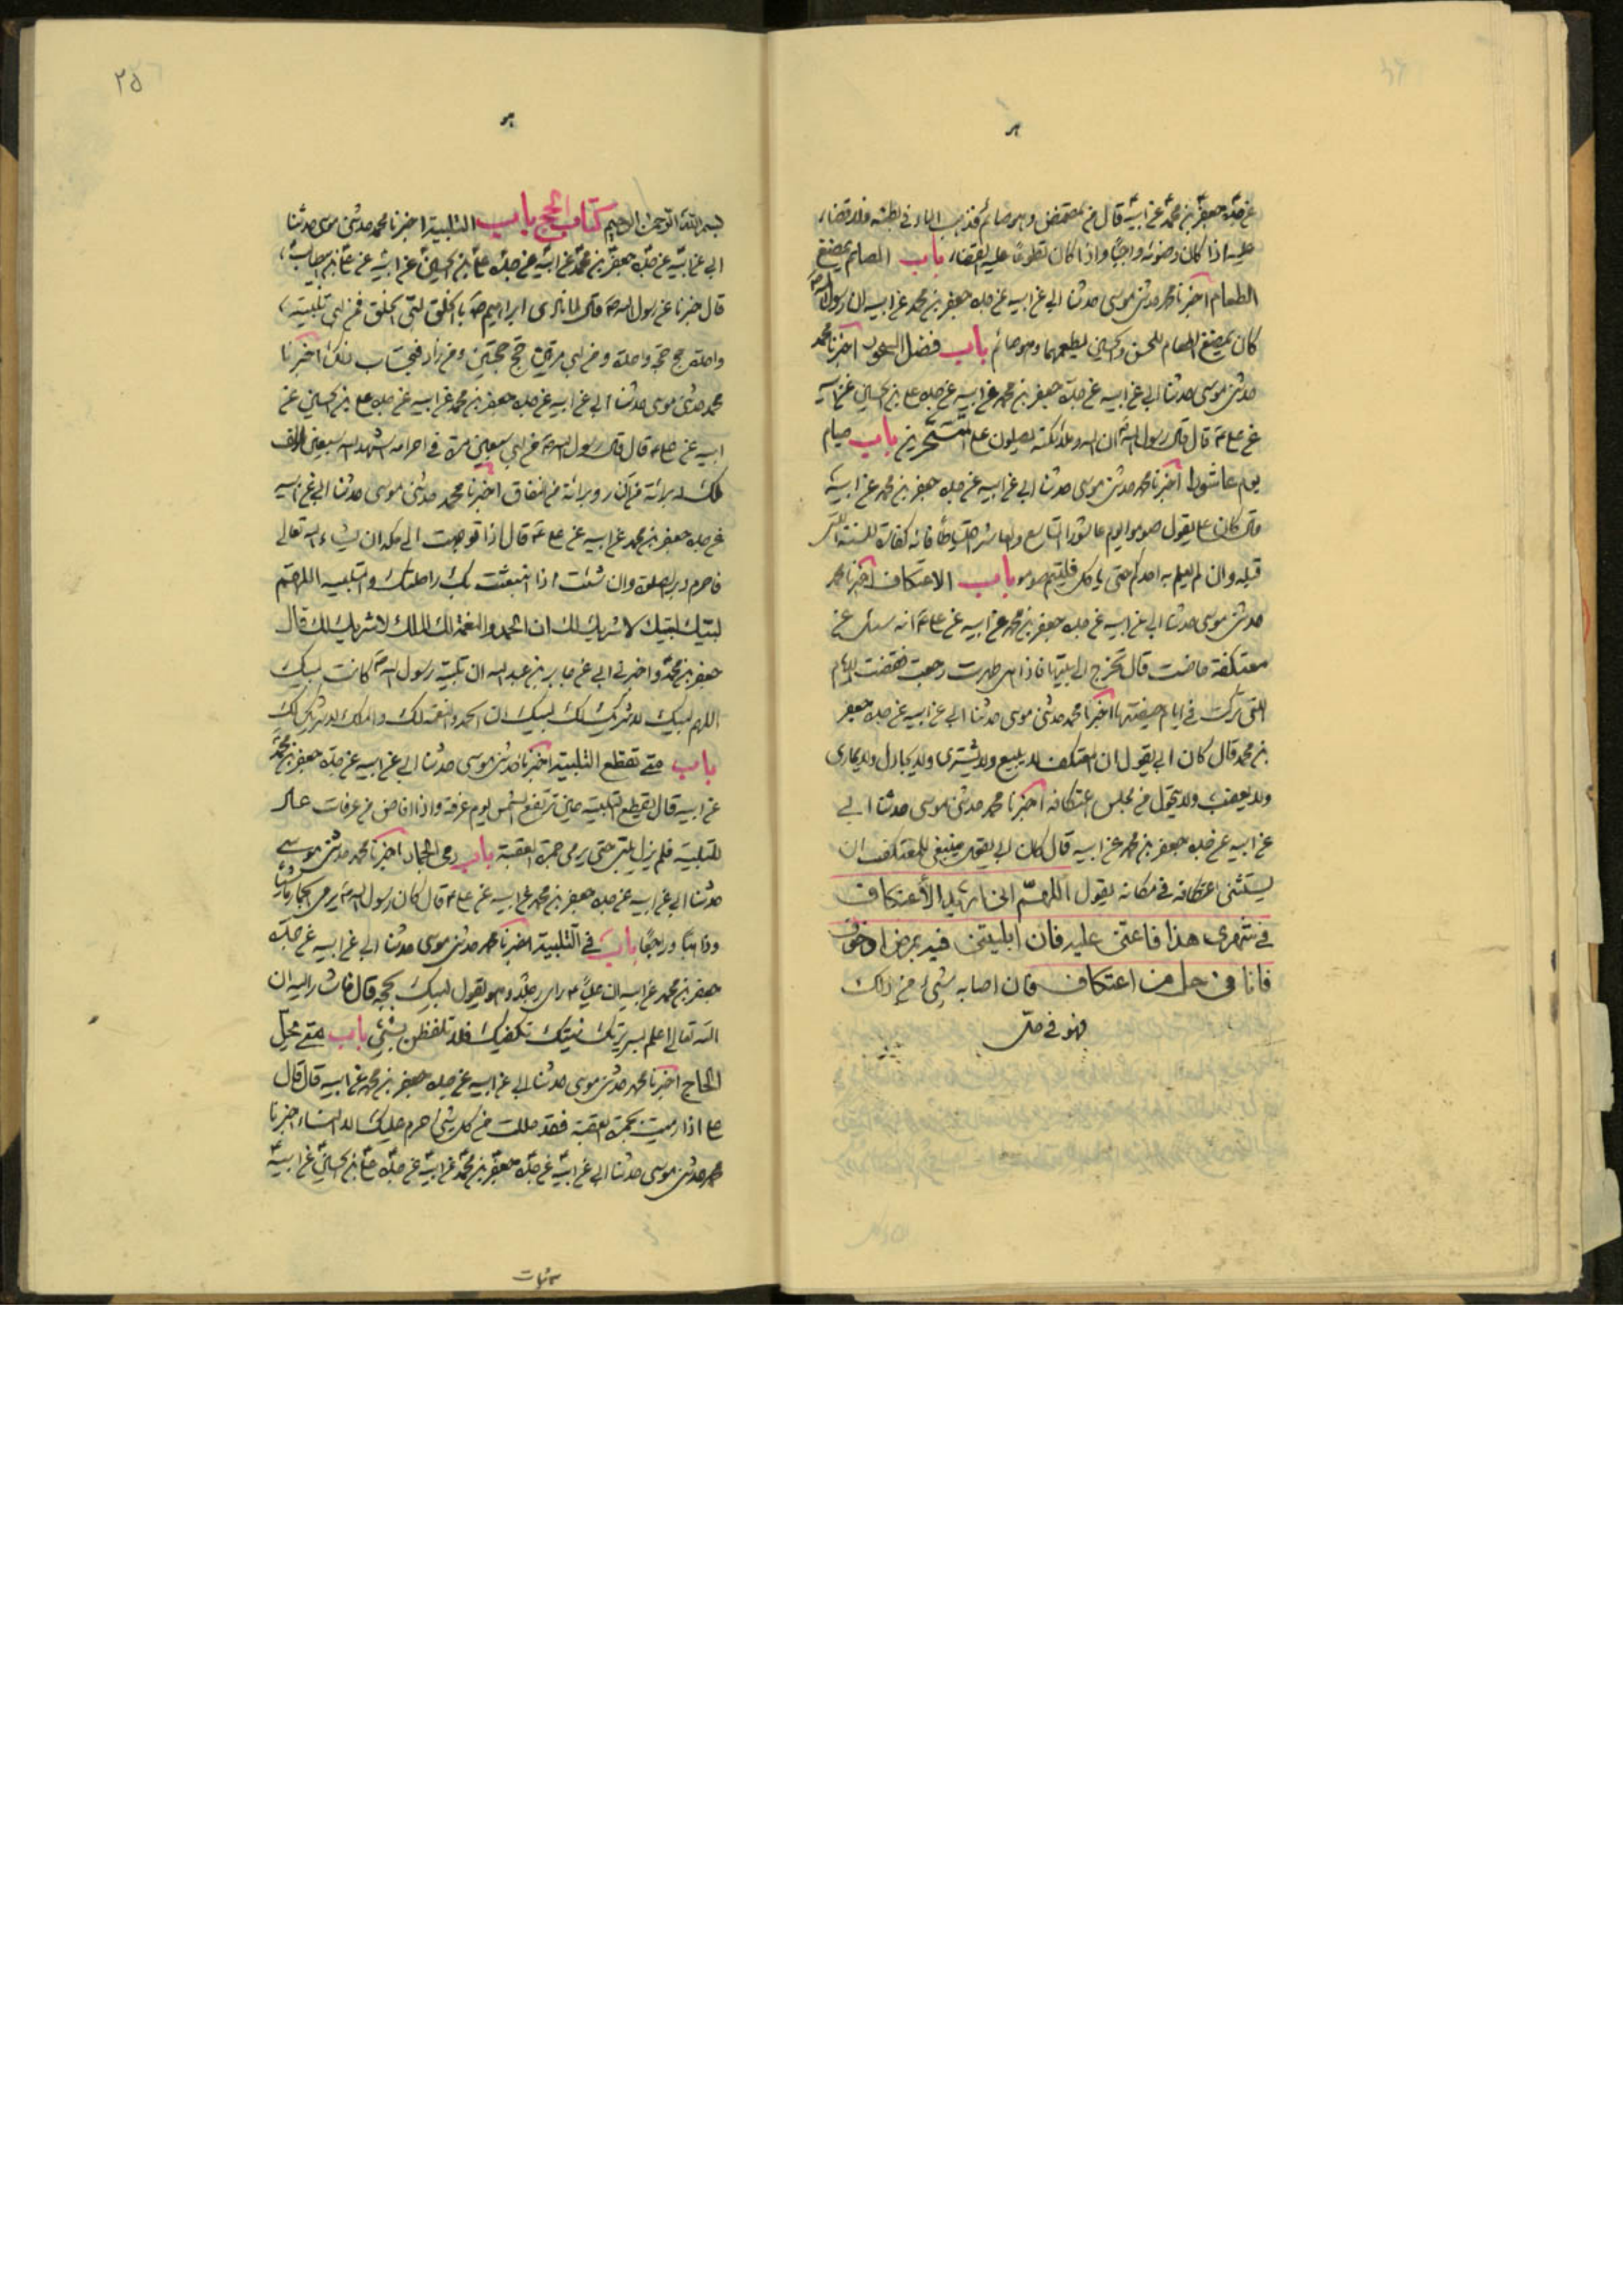 عن جده جعفر بن محمد عن ابيه قال من تمضمض وهو صائم فذهب الماء في بطنه فلا قضاء
عليه اذا كان وضوئه واجبًا واذا كان تطوعًا عليه القضاء باب الصائم يمضغ
الطعام اخبرنا محمد حدثني موسى حدثنا ابي عن ابيه عن جده جعفر بن محمد عن ابيه ان رسول الله ص
كان يمضغ الطعام للحسن والحسين يطعمهما وهو صائم باب فضل السحور اخبرنا محمد
حدثني موسى حدثنا ابي عن ابيه عن جده جعفر بن محمد عن ابيه عن جده علي بن الحسين عن ابيه
عن علي ع قال قال رسول الله ص ان الله وملائكته يصلون على المتسحرين باب صيام
يوم عاشورا اخبرنا محمد حدثني موسى حدثنا ابي عن ابيه عن جده جعفر بن محمد عن ابيه
قال كان علي يقول صوموا يوم عاشورا التاسع والعاشر احتياطًا فانه كفارة للسنة التي
قبله وان لم يعلم به احدكم حتى ياكل فليتم صومه باب الاعتكاف اخبرنا محمد
حدثني موسى حدثنا ابي عن ابيه عن جده جعفر بن محمد عن ابيه عن علي ع انه سئل عن
معتكفة حاضت قال تخرج الى بيتها فاذا هي طهرت رجعت فقضت الايام
التي تركت في ايام حيضتها اخبرنا محمد حدثني موسى حدثنا ابي عن ابيه عن جده جعفر
بن محمد قال كان ابي يقول ان المعتكف لا يبيع ولا يشترى ولا يجادل ولا يمارى
ولا يغضب ولا يتحول من مجلس اعتكافه اخبرنا محمد حدثني موسى حدثنا ابي
عن ابيه عن جده جعفر بن محمد عن ابيه قال كان ابي يقول ينبغي للمعتكف ان
يستثنى اعتكافه في مكانه يقول اللهمّ انى اريد الأعتكاف
في شهرى هذا فاعنى عليه فان ابليتنى فيه بمرض او خوف
فانا في حل من اعتكاف فان اصابه شيء من ذلك
فهو في حلّ
٢٥
بسم الله الرحمن الرحيم كتاب الحج باب التلبية اخبرنا محمد حدثني موسى حدثنا
ابي عن ابيه عن جده جعفر بن محمد عن ابيه عن جده علي بن الحسين عن ابيه عن علي بن ابيطالب
قال خبرنا عن رسول الله ص قال لما نادى ابراهيم ص بالخلق لبى الخلق فمن لبى تلبية
واحدة حج حجة واحدة ومن لبى مرتين حج حجتين ومن زاد فبحساب ذلك اخبرنا
محمد حدثني موسى حدثنا ابي عن ابيه عن جده جعفر بن محمد عن ابيه عن جده علي بن الحسين عن
ابيه عن علي ع قال قال رسول الله ص من لبى سبعين مرة في احرامه اشهد الله سبعين الف
ملك له برائة من النار وبرائة من النفاق اخبرنا محمد حدثني موسى حدثنا ابي عن ابيه
عن جده جعفر بن محمد عن ابيه عن علي ع قال اذا توجهت الى مكه ان شاء الله تعالى
فاحرم دبر الصلوة وان شئت اذا انبعثت بك راحلتك والتلبيه اللهمّ
لبّيك لبّيك لا شريك لك ان الحمد والنعمة لك والملك لا شريك لك قال
جعفر بن محمد واخبرني ابي عن جابر بن عبد الله ان تلبية رسول الله ص كانت لبيك
اللهم لبيك لا شريك لك لبيك ان الحمد والنعمة لك والملك لا شريك لك
باب متى تقطع التلبية اخبرنا حدثني موسى حدثنا ابي عن ابيه عن جده جعفر بن محمد
عن ابيه قال يقطع التلبية حين ترتفع الشمس يوم عرفة واذا افاض من عرفات عاد
للتلبية فلم يزل يلبى حتى يرمي جمرة العقبة باب رمى الجمار اخبرنا محمد حدثني موسى
حدثنا ابي عن ابيه عن جده جعفر بن محمد عن ابيه عن علي ع قال كان رسول الله ص يرمي الجمار ماشيا
وذاهبًا وراجعًا باب في التلبية اخبرنا محمد حدثني موسى حدثنا ابي عن ابيه عن جده
جعفر بن محمد عن ابيه ان عليًا ع راى رجلا وهو يقول لبيك بحجه قال فاشار اليه ان
الله تعالى اعلم بسريرتك نيتك تكفيك فلا تلفظن بشيء باب متى يحل
الحاج اخبرنا محمد حدثني موسى حدثنا ابي عن ابيه عن جده جعفر بن محمد عن ابيه قال قال
علي اذا رميت جمرة العقبة فقد حللت من كل شيء احرم عليك الا النساء اخبرنا
محمد حدثني موسى حدثنا ابي عن ابيه عن جده جعفر بن محمد عن ابيه عن جده علي بن الحسين عن ابيه